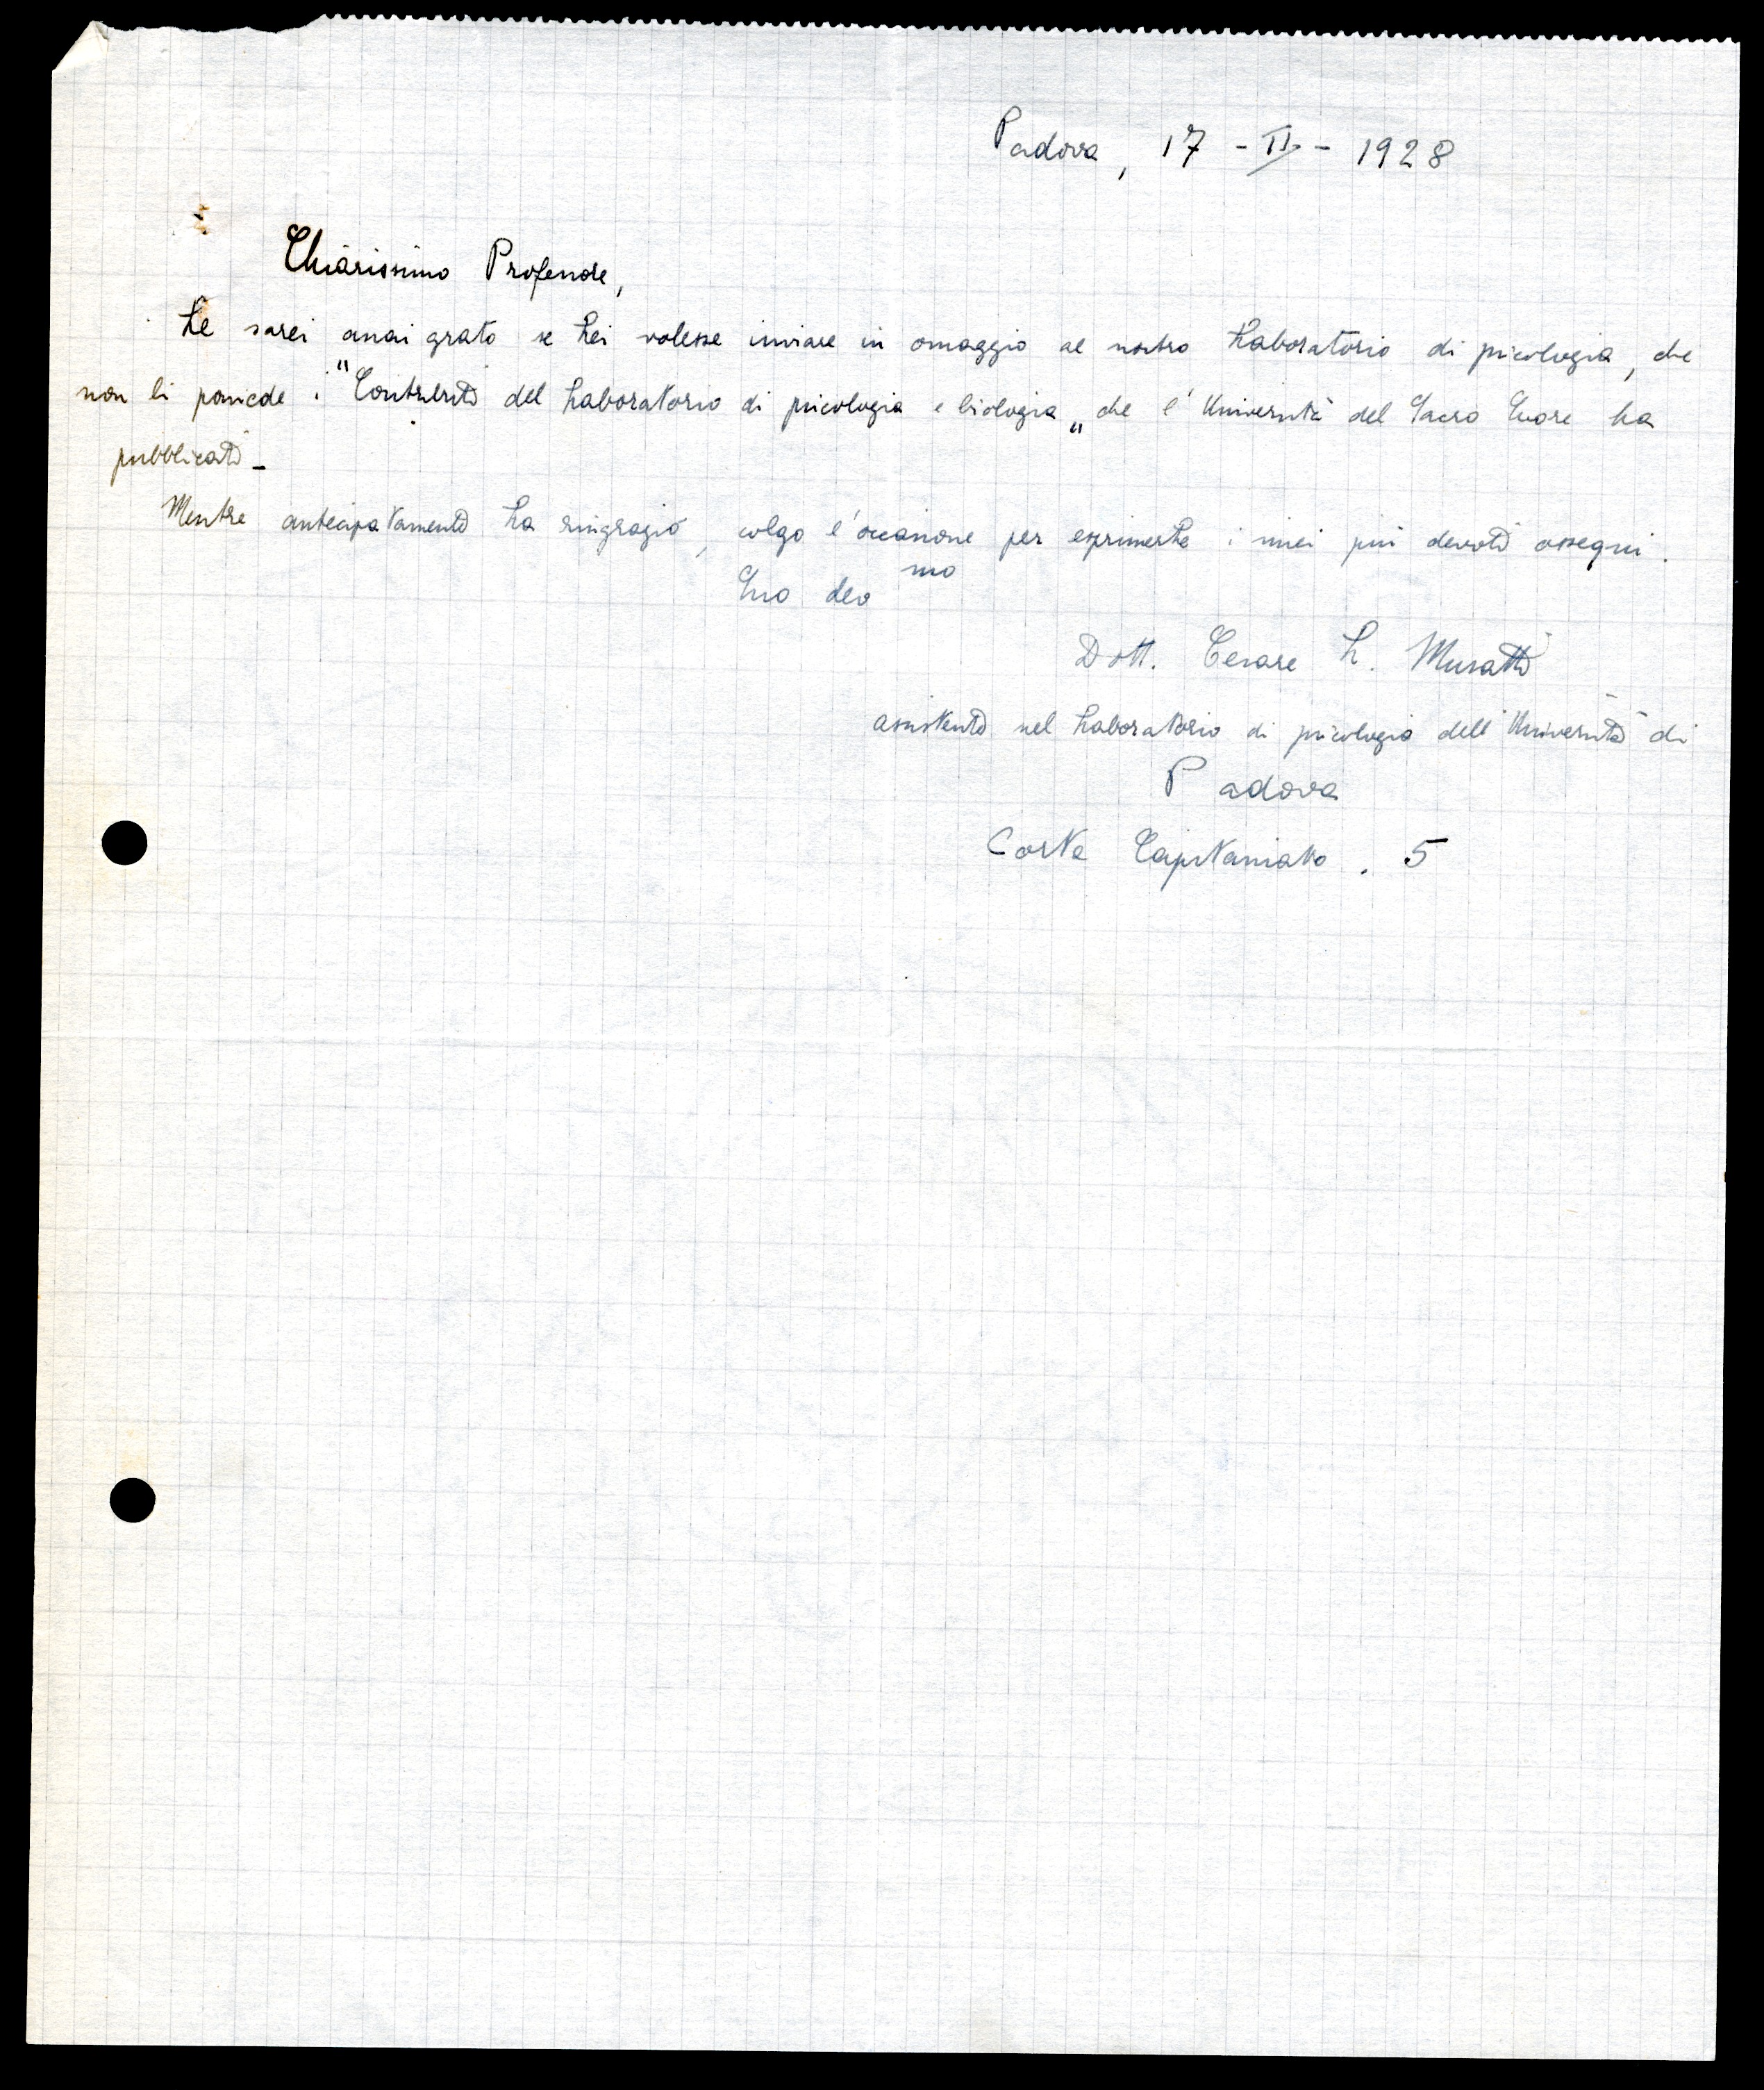 Padova, 17 - II - 1928
Chiarissimo Professore,
Le sarei assai grato se Lei volesse inviare in omaggio al nostro Laboratorio di psicologia, che
non li possiede i "Contributi del Laboratorio di psicologia e biologia„ che l'Università del Sacro Cuore ha
pubblicati -
Mentre anticipatamente La ringrazio, colgo l'occasione per esprimerLe i miei più devoti ossequi.
Suo dev mo
Dott. Cesare L. Musatti
assistente nel Laboratorio di psicologia dell'Università di
Padova
Corte Capitaniato. 5